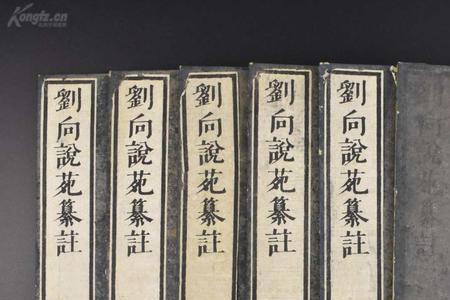 Kongfz.cn
劉向說苑纂註
劉向說苑纂註
劉向說苑纂註
劉向說苑纂註
劉向說苑纂註